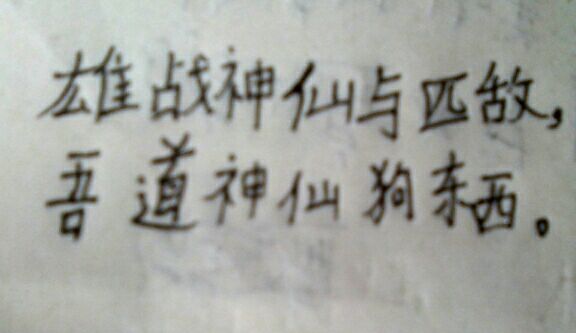 雄战神仙与匹敌,
吾道神仙狗东西。